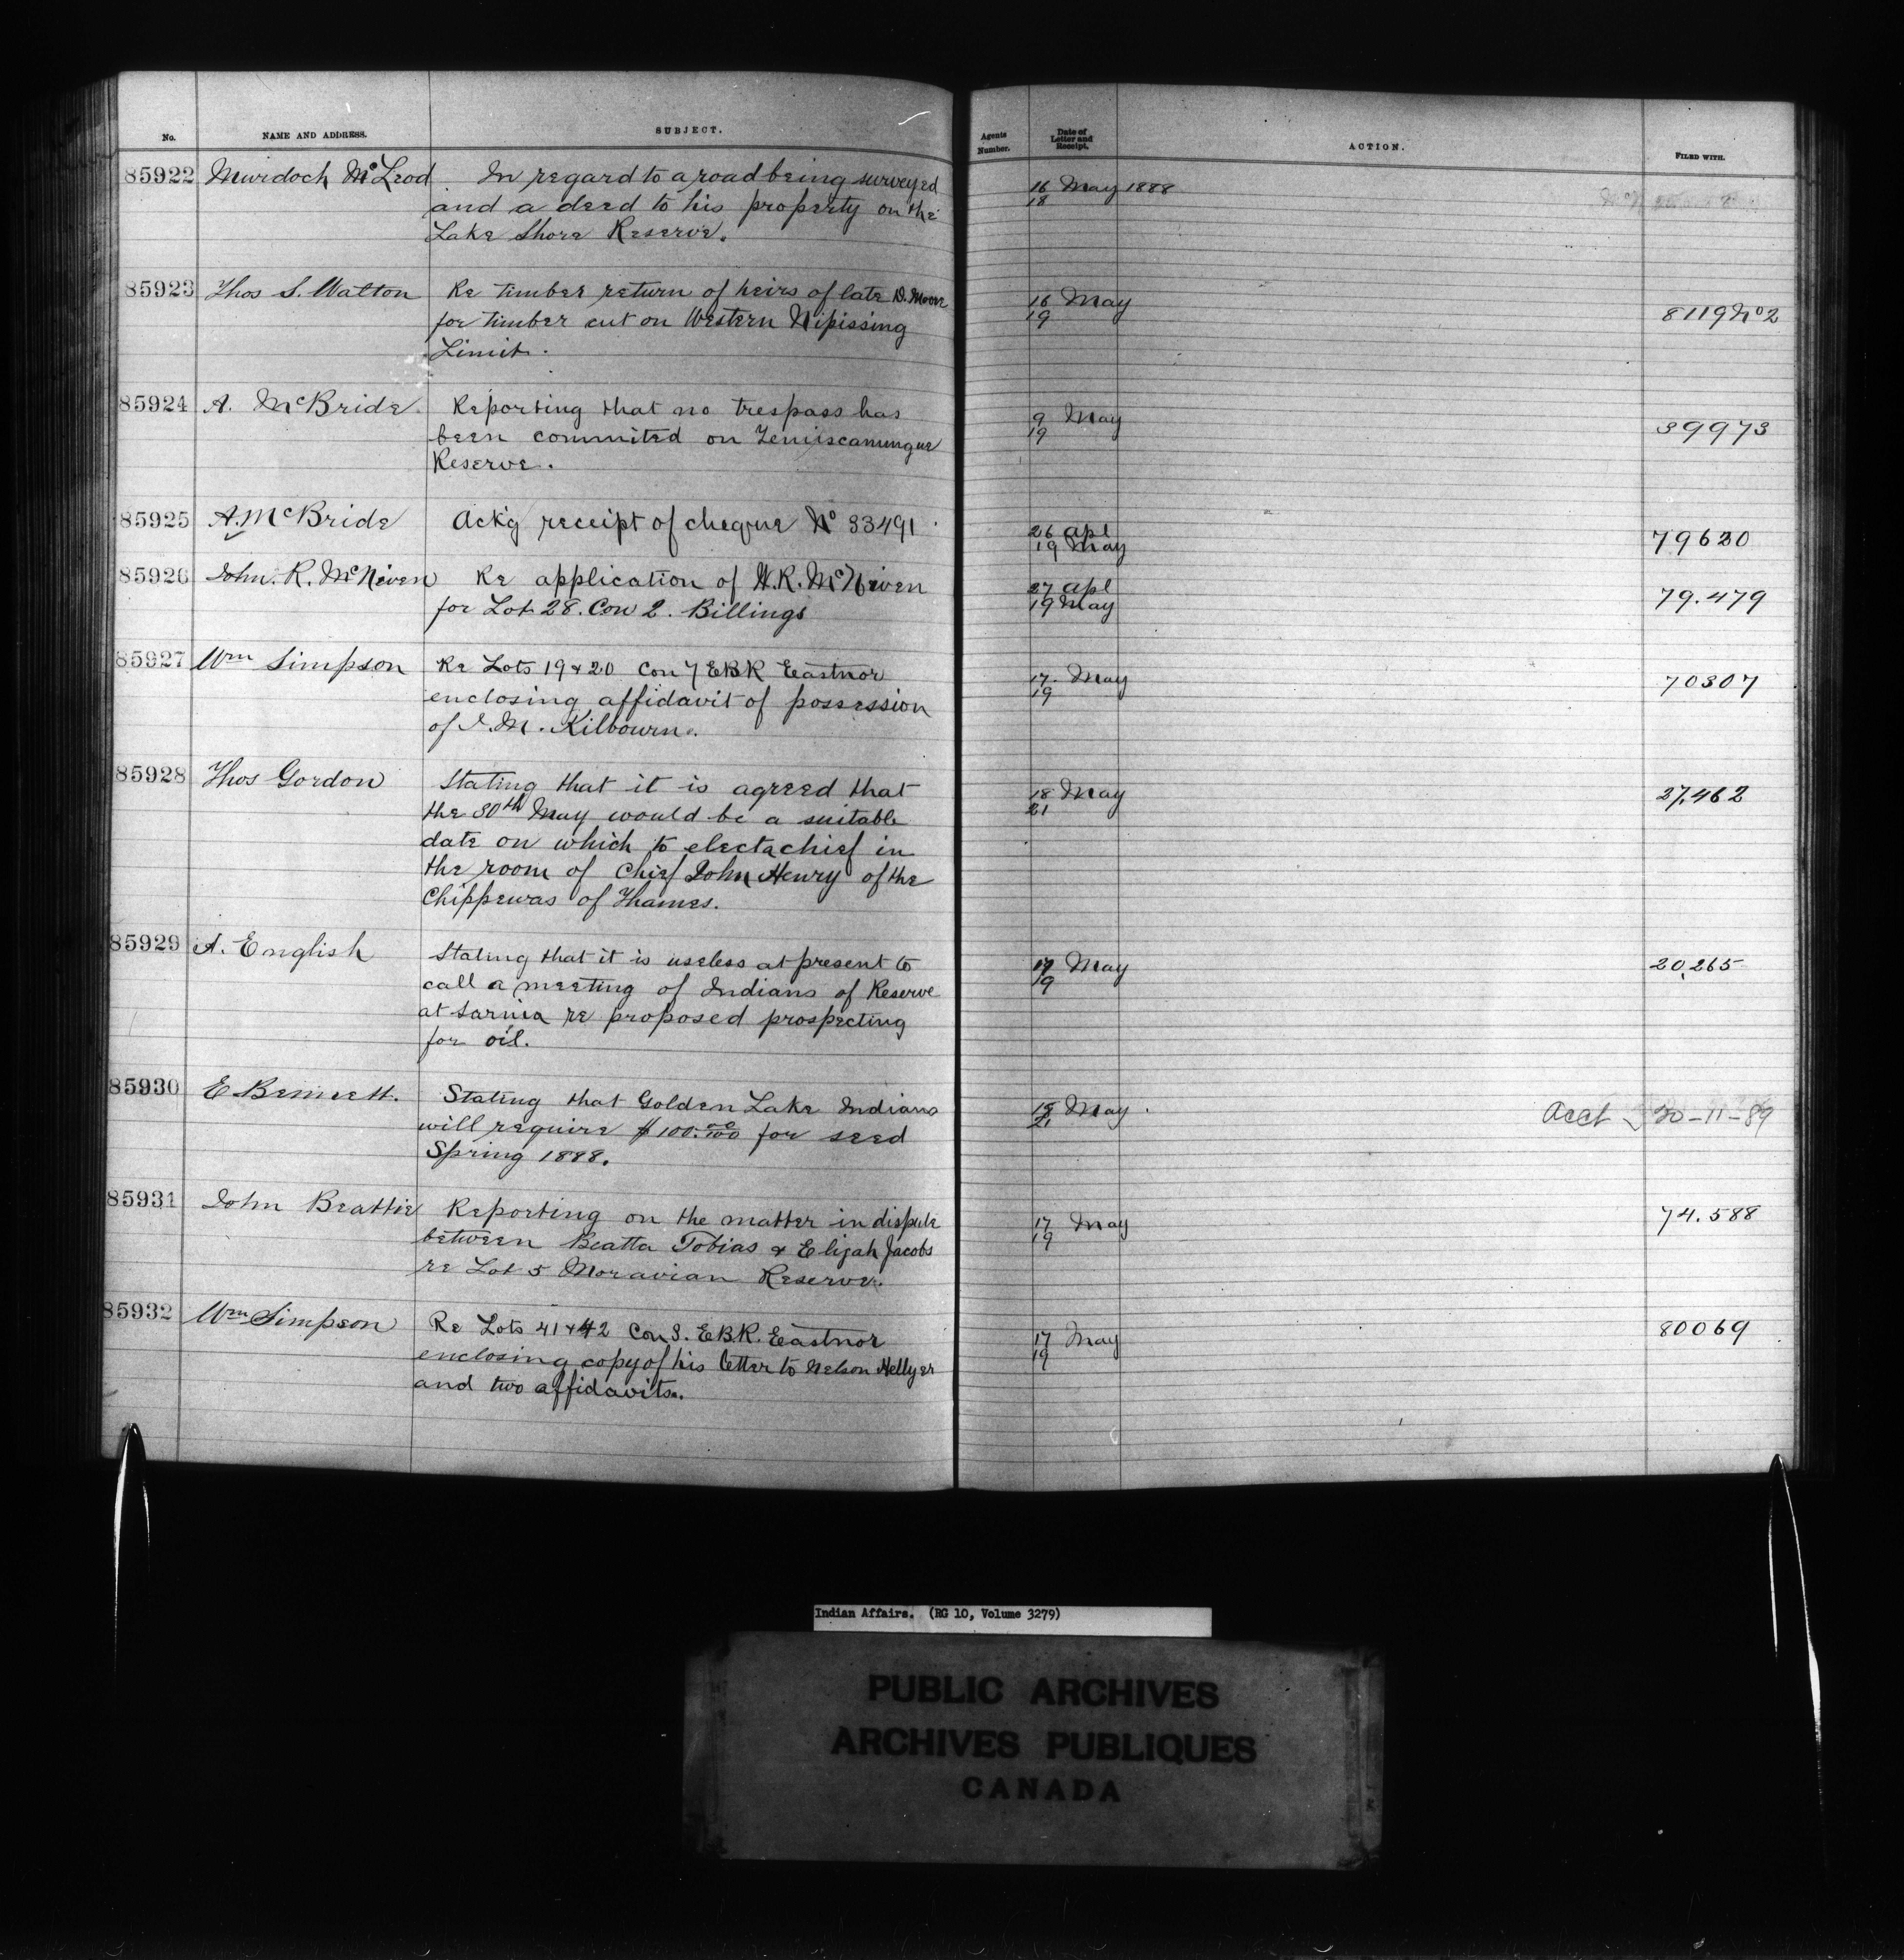 No. NAME AND ADDRESS. SUBJECT.
85922 Murdoch McLeod. In regard to a road being surveyed
and a deed to his property on the
Lake Shore Reserve.
85923 Thos S. Walton Re timber return of heirs of late D. Moore
for timber cut on Western Nipissing
Limit.
85924 A. McBride. Reporting that no trespass has
been commited on Temiscamungue
Reserve.
85925 A. McBride Ack'g receipt of cheque No 33491.
85926 John. R. McNiven Re application of W.R. McNiven
for Lot 28. Con 2. Billings
85927 Wm Simpson Re Lots 19 & 20 Con 7 EBR Eastnor
enclosing affidavit of possession
of J. M. Kilbourn.
85928 Thos Gordon Stating that it is agreed that
the 30th May would be a suitable
date on which to elect a chief in
the room of Chief John Henry of the
Chippewas of Thames.
85929 A. English Stating that it is useless at present to
call a meeting of Indians of Reserve
at Sarnia re proposed prospecting
for oil.
85930 E Bennett. Stating that Golden Lake Indians
will require $100.00/100 for seed
Spring 1888.
85931 John Beattie Reporting on the matter in dispute
between Beatta Tobias & Elijah Jacobs
re Lot 5 Moravian Reserve.
85932 Wm Simpson Re Lots 41 & 42 Con 3. EBR. Eastnor
enclosing copy of his letter to Nelson Hellyer
and two affidavits.
Agents Number. Date of Letter and Receipt. ACTION. FILED WITH.
16 May 1888
18
16 May
19
8119 No 2
9 May
19
39973
26 Apl
19 May
79620
27 Apl
19 May
79.479
17. May
19
70307
18 May
21
27,462
17 May
19
20,265
May.
21
Acct 20-11-89
17 May
19
74.588
17 May
19
80069
Indian Affairs. (RG 10, Volume 3279)
PUBLIC ARCHIVES
ARCHIVES PUBLIQUES
CANADA